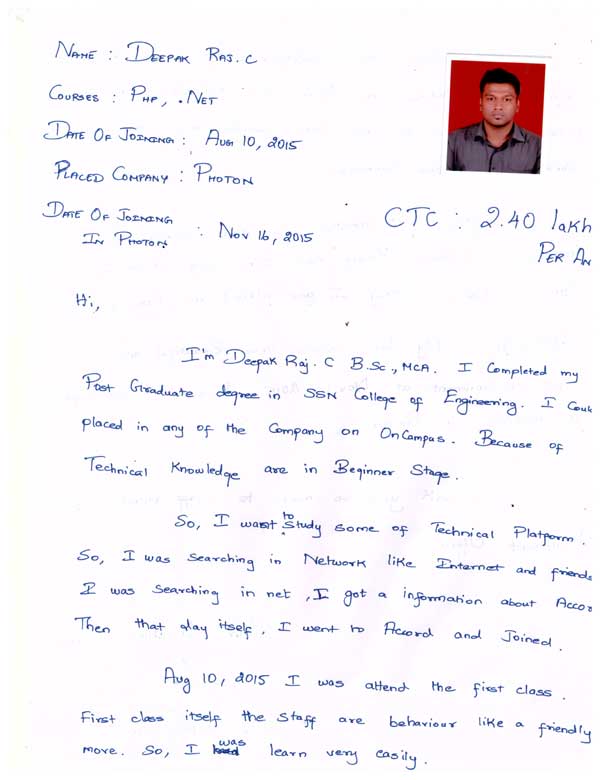 Name : Deepak Raj. C
Courses : Php, .Net
Date Of Joining : Aug 10, 2015
Placed Company : Photon
Date Of Joining
In Photon : Nov 16, 2015
CTC : 2.40 lakh
Per An
Hi,
I'm Deepak Raj. C B.Sc., MCA. I Completed my
Post Graduate degree in SSN College of Engineering. I Coul
placed in any of the Company on OnCampus. Because of
Technical Knowledge are in Beginner Stage.
So, I want to study some of Technical Platform.
So, I was searching in Network like Internet and friends
I was searching in net, I got a information about Accor
Then that day itself, I went to Accord and Joined.
Aug 10, 2015 I was attend the first class.
First class itself the staff are behaviour like a friendly
more. So, I was learn very easily.